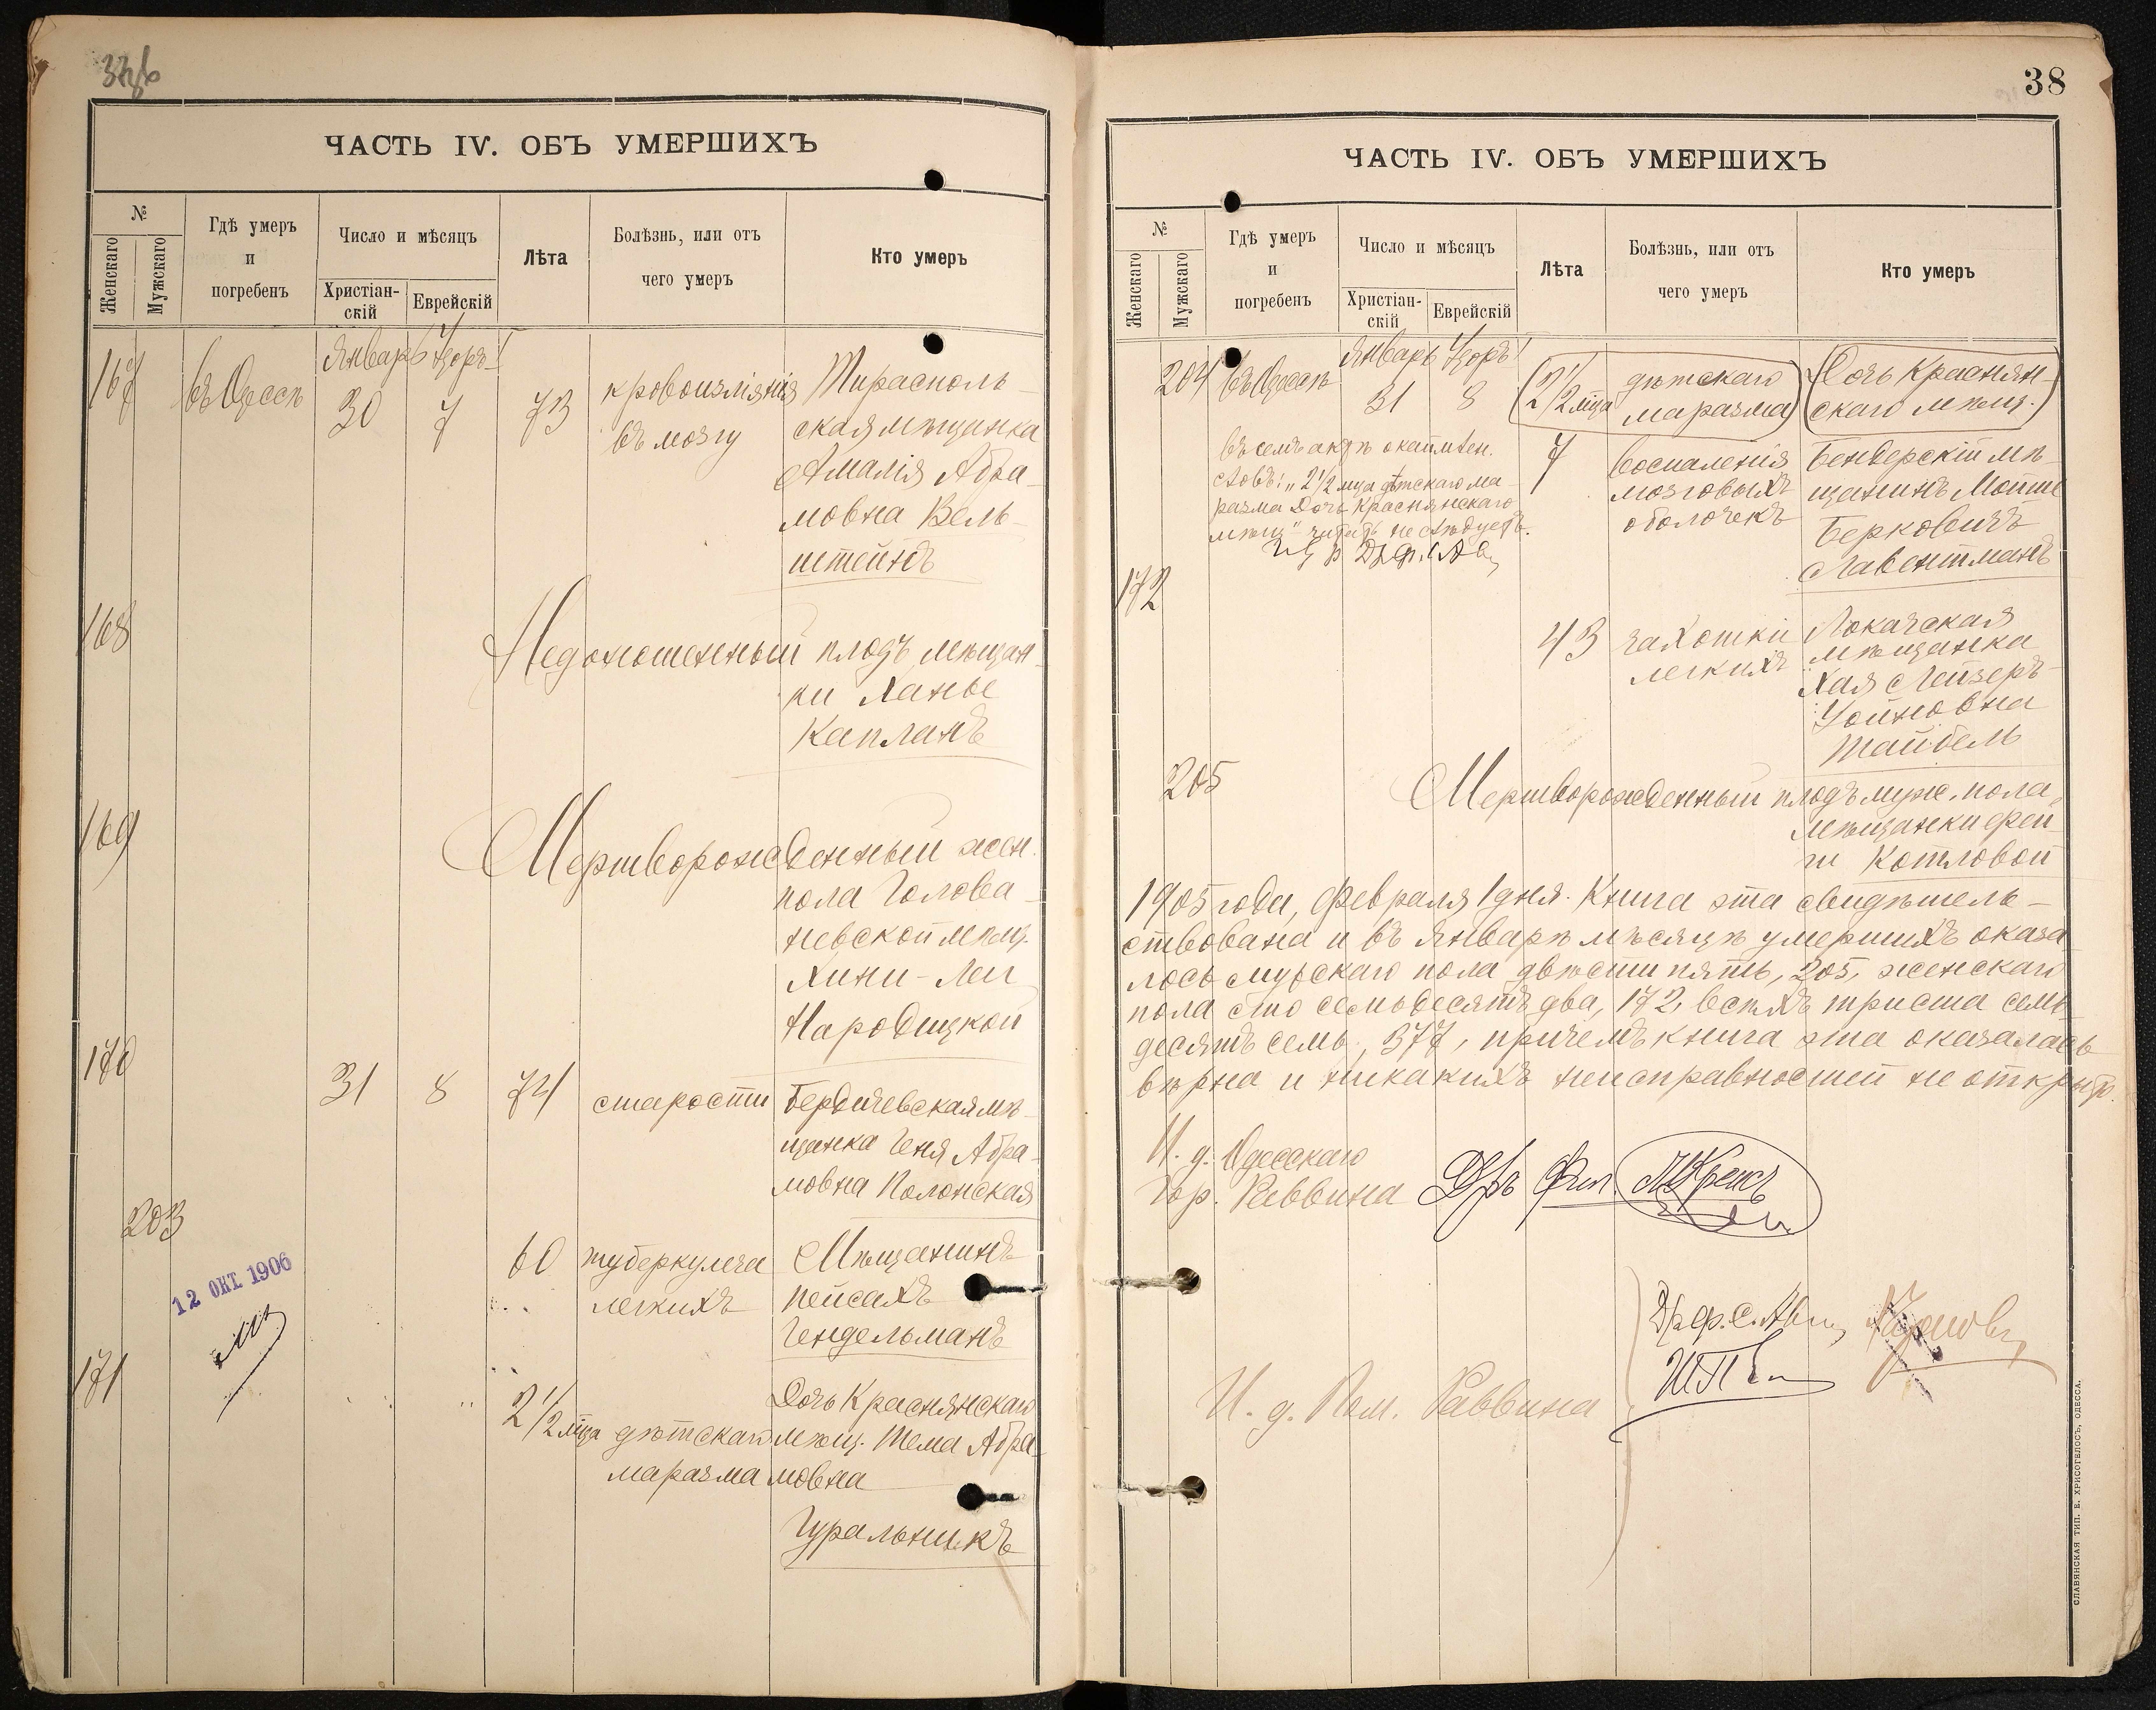 ЧАСТЬ IV. ОБЪ УМЕРШИХЪ
№
Женскаго
Мужскаго
Гдѣ умеръ
и
погребенъ
Число и мѣсяцъ
Христіан-
скій
Еврейскій
Лѣта
Болѣзнь, или отъ
чего умеръ
Кто умеръ
167
въ Одессѣ
Январь
30
7
73
кровоизліянія
въ мозгу
Тирасполь-
ская мѣщанка
Амалія Абра-
мовна Вель-
штейнъ
168
Недоношенный плодъ мѣщан-
ки Ханье
Капланъ
169
Мертворожденный жен.
пола Голова-
невской мѣщ.
Хини-Леи
Народицкой
170
31
8
74
старости
Бердичевская мѣ-
щанка Геня Абра-
мовна Полонская
203
60
туберкулеза
легкихъ
Мѣщанинъ
Пейсахъ
Гендельманъ
12 ОКТ 1906
171
2 1/2 мца
дѣтскаго
маразма
Дочь Краснянскаго
мѣщ. Тема Абра-
мовна
Гуральникъ
38
ЧАСТЬ IV. ОБЪ УМЕРШИХЪ
№
Женскаго
Мужскаго
Гдѣ умеръ
и
погребенъ
Число и мѣсяцъ
Христіан-
скій
Еврейскій
Лѣта
Болѣзнь, или отъ
чего умеръ
Кто умеръ
204
въ Одессѣ
Январь
31
8
(2 1/2 мца
дѣтскаго
маразма)
(Дочь Краснян-
скаго мѣщ.)
въ семъ актѣ
словъ: „2 1/2 мца дѣтскаго ма-
разма Дочь Краснянскаго
мѣщ" читать не слѣдуетъ.
7
воспаленія
мозговыхъ
оболочекъ
Бендерскій мѣ-
щанинъ Мойше
Берковичъ
Лавентманъ
172
43
чахотки
легкихъ
Локачская
мѣщанка
Хая Лейзеръ-
Уойновна
Тайбель
205
Мертворожденный плодъ муж. пола,
мѣщанки Фей-
ги Котловой
1905 года, Февраля 1 дня. Книга эта свидѣтель-
ствована и въ Январѣ мѣсяцѣ умершихъ оказа-
лось мужскаго пола двѣсти пять, 205, женскаго
пола сто семьдесятъ два, 172, всѣхъ триста семь-
десятъ семь, 377, причемъ книга эта оказалась
вѣрна и никакихъ неисправностей не открыто.
И. д. Одесскаго
Гор. Раввина Д-ръ Фил.
И. д. Пом. Раввина
СЛАВЯНСКАЯ ТИП. Е. ХРИСОГЕЛОСЪ, ОДЕССА.